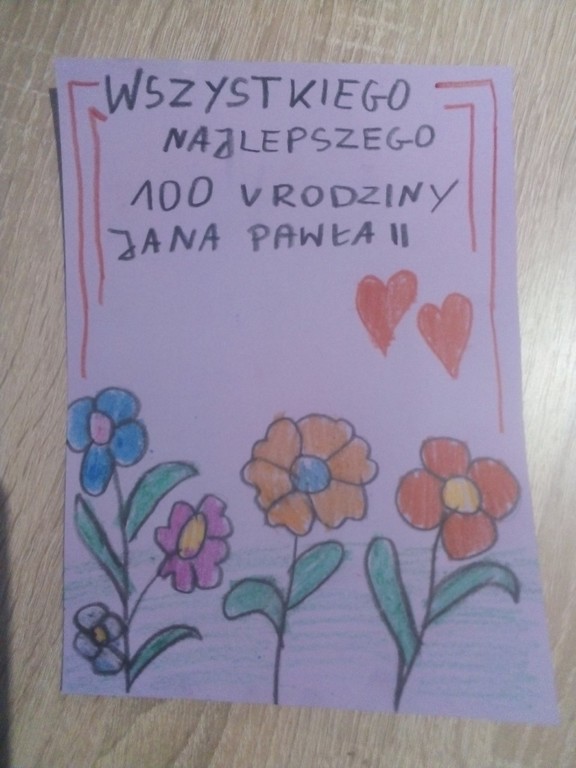 WSZYSTKIEGO
NAJLEPSZEGO
100 URODZINY
JANA PAWŁA II